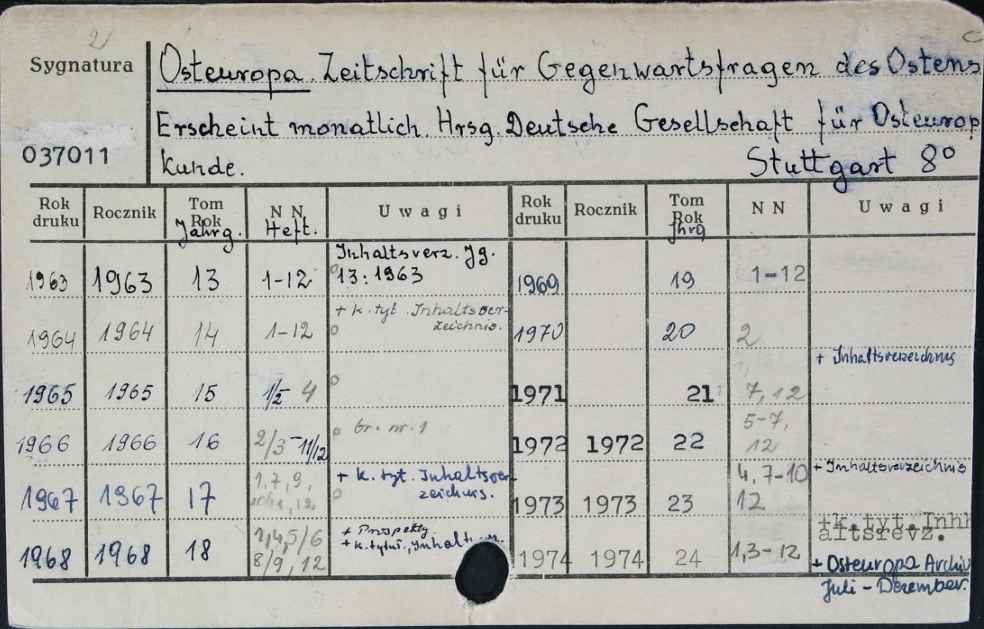 2
Sygnatura
037011
Osteuropa. Zeitschrift für Gegenwartsfragen des Ostens
Erscheint monatlich. Hrsg. Deutsche Gesellschaft für Osteurop
Kunde. Stuttgart 8°
Rok druku Rocznik Tom Rok Jahrg. N N. Heft. Uwagi Rok druku Rocznik Tom Rok Jhrg N N Uwagi
1963 1963 13 1-12 Inhaltsverz. Jg. 13: 1963 1969 19 1-12
1964 1964 14 1-12 + k. tyt. Inhaltsver- zeichnis. 1970 20 2
1965 1965 15 1/2 4 1971 21 7, 12 + Inhaltsverzeichnis
1966 1966 16 2/3-11/12 br. nr. 1 1972 1972 22 5-7, 12
1967 1967 17 1, 7, 9, 12 + k. tyt. Inhaltsver- 1973 1973 23 4, 7-10 12 + Inhaltsverzeichnis
1968 1968 18 5/6 8/9, 12 + Prospekty 1974 1974 24 1,3-12 +k.tyt.Inhh altsrevz.
+ Osteuropa Archiv
Juli - Dezember.